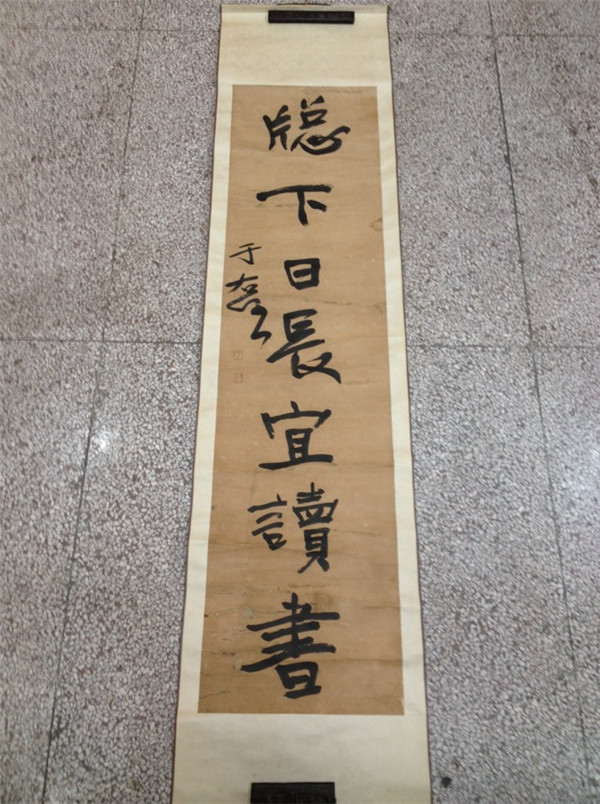 牕下日長宜讀書
于右任